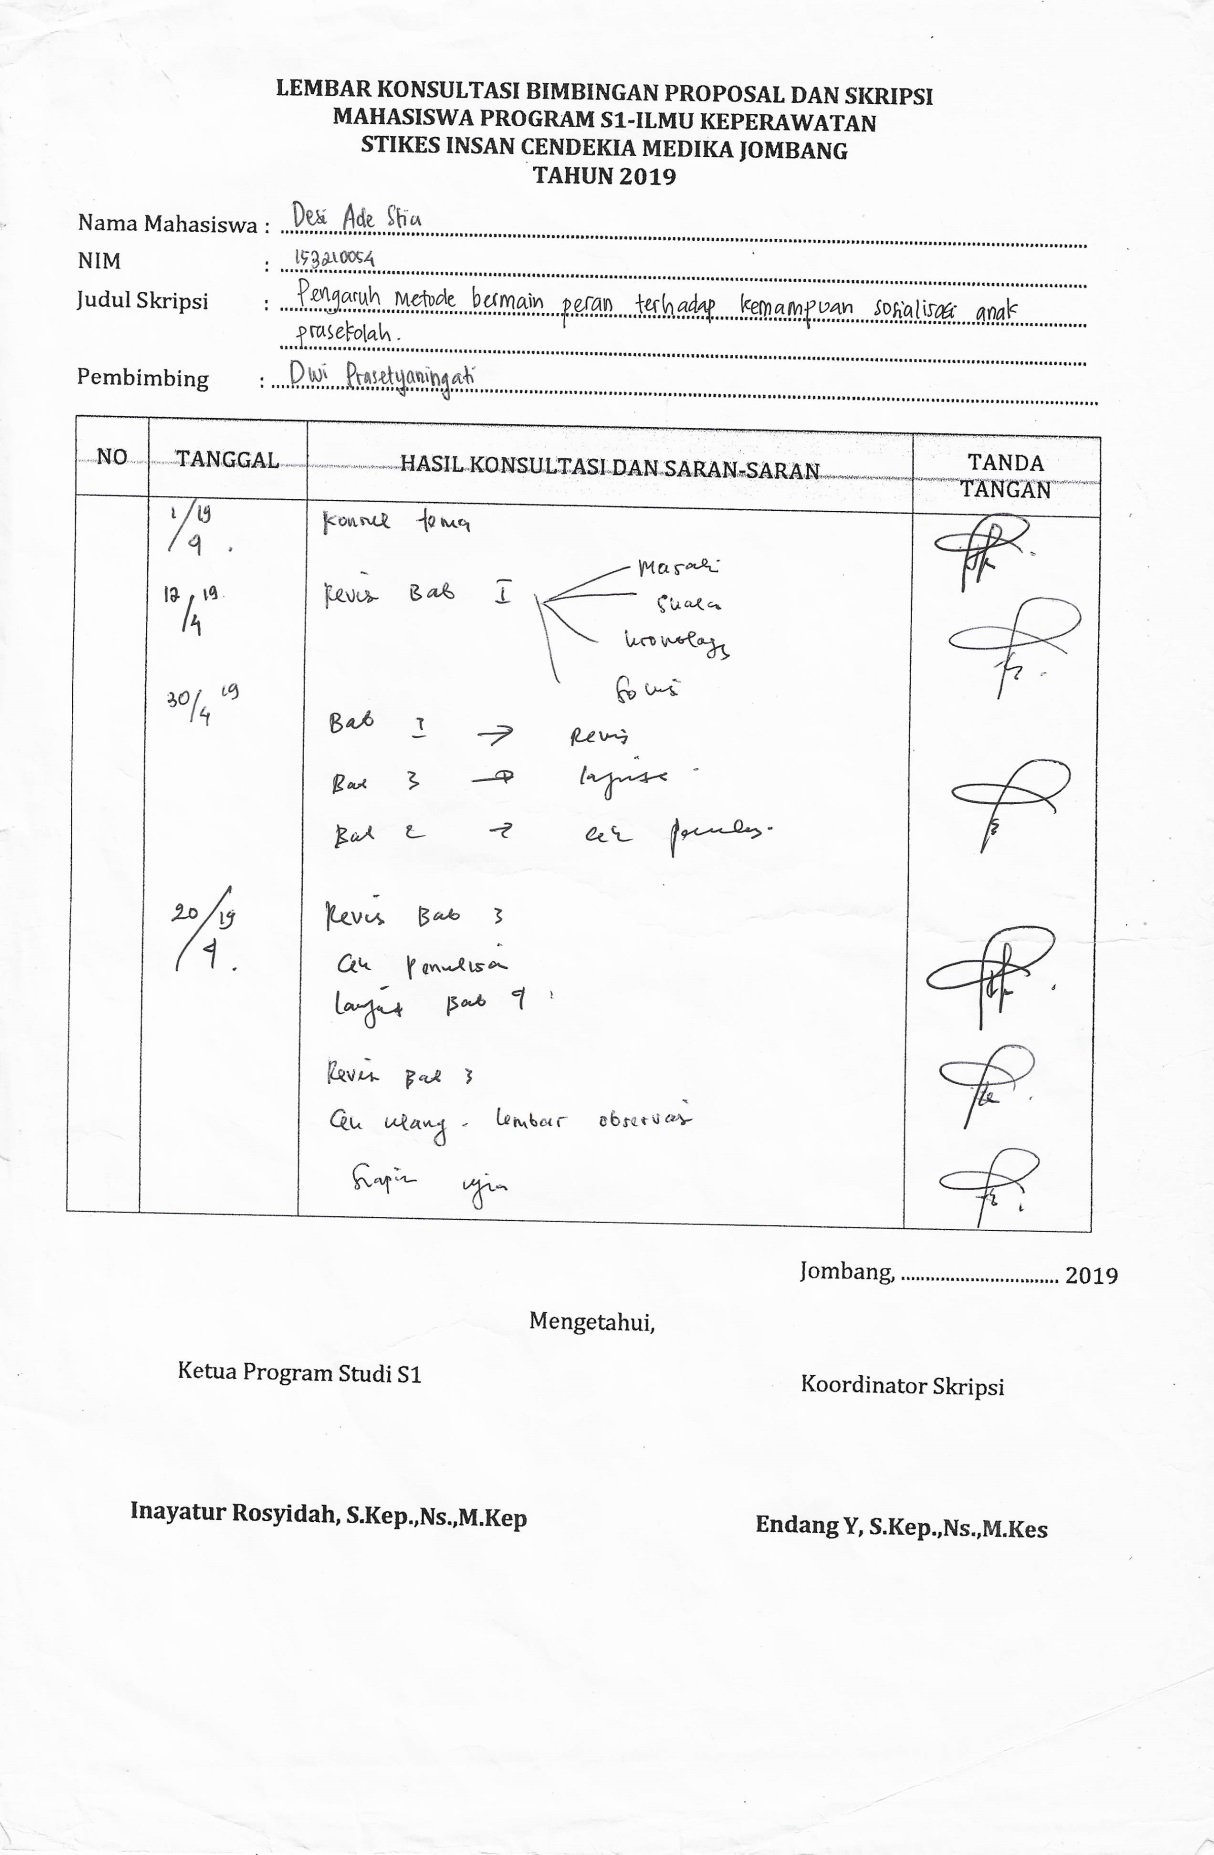 LEMBAR KONSULTASI BIMBINGAN PROPOSAL DAN SKRIPSI
MAHASISWA PROGRAM S1-ILMU KEPERAWATAN
STIKES INSAN CENDEKIA MEDIKA JOMBANG
TAHUN 2019
Nama Mahasiswa : Desi Ade
NIM : 153210054
Judul Skripsi : Pengaruh Metode bermain peran terhadap kemampuan sosialisasi anak
prasekolah.
Pembimbing : Dwi Prasetyaningati
NO TANGGAL HASIL KONSULTASI DAN SARAN-SARAN TANDA
TANGAN
Konsul tema
Revisi Bab I
Masalah
Skala
kronologis
Solusi
30/4 19
Bab I → Revisi
Bab 3 →
Bab 2 → cek
20/19 Revisi Bab 3
Cek Penulisan
Lanjut Bab
Revisi Bab 3
Cek ulang - lembar observasi
Siapin ujian
Jombang, .............................. 2019
Mengetahui,
Ketua Program Studi S1
Koordinator Skripsi
Inayatur Rosyidah, S.Kep.,Ns.,M.Kep
Endang Y, S.Kep.,Ns.,M.Kes